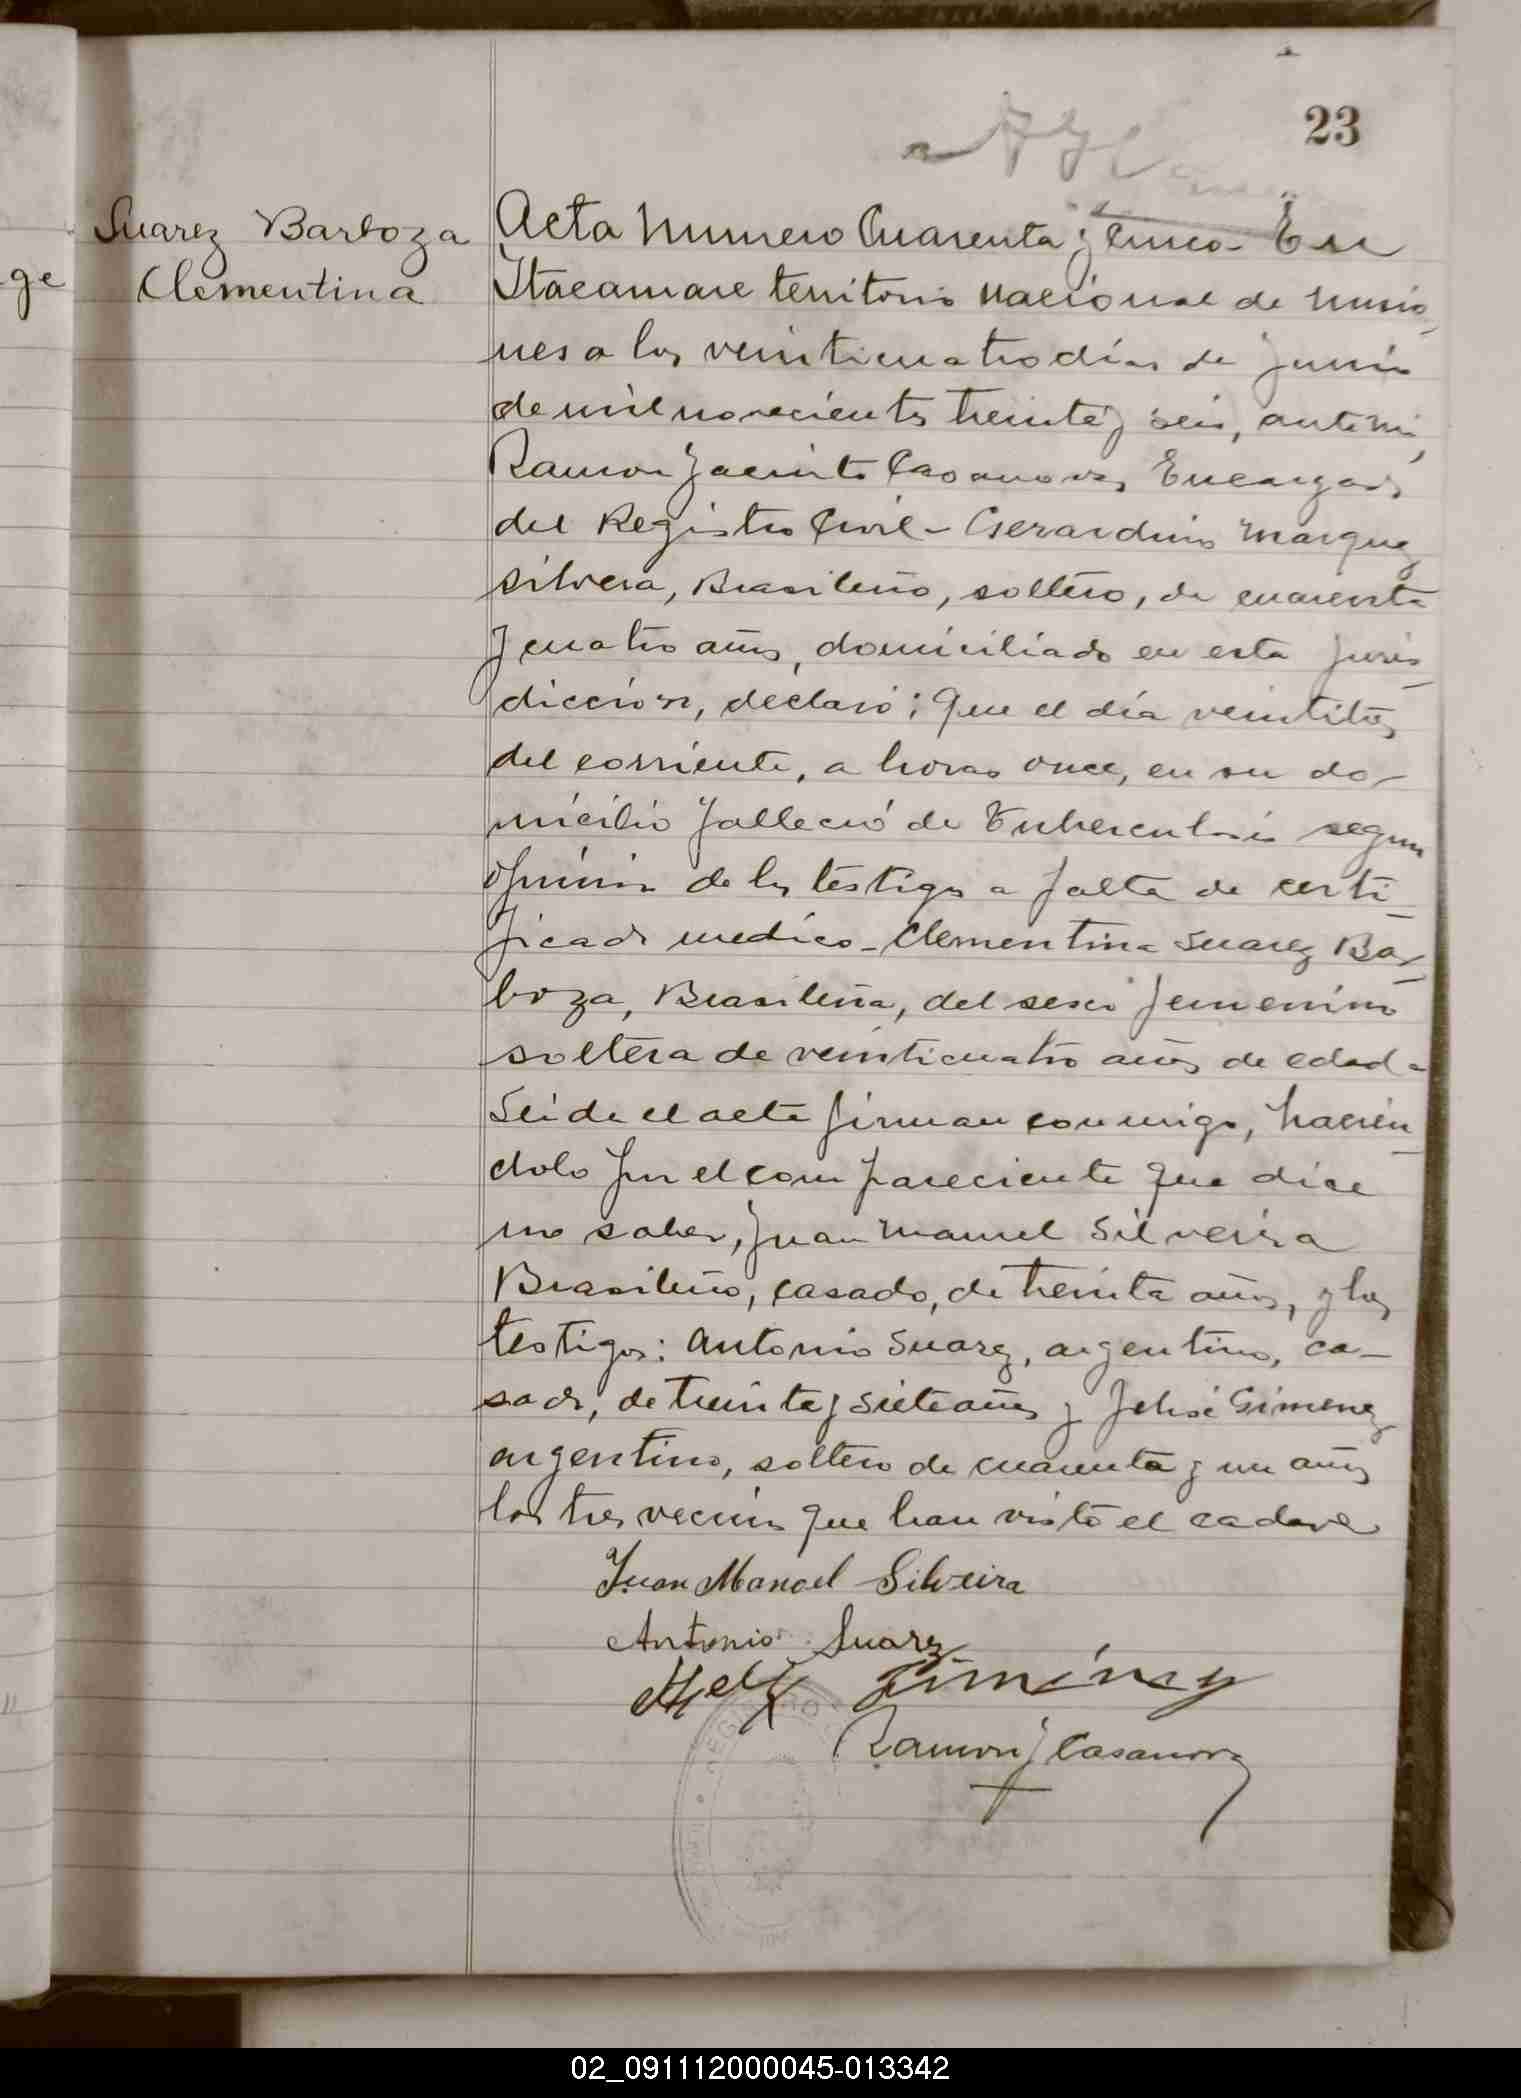 23
Suarez Barboza
Clementina
ge
Acta Numero Cuarenta y cinco - En
Itacaruare territorio nacional de Misio-
nes a los veinticuatro días de Junio
de mil novecientos treinta y seis, ante mi,
Ramon Jacinto Casanova, Encargado
del Registro Civil - Gerardino Marquez
Silvera, Brasileño, soltero, de cuarenta
y cuatro años, domiciliado en esta juris-
dicción, declaró: Que el día veintitrés
del corriente, a horas once, en su do-
micilio falleció de Tuberculosis segun
opinión de los testigos a falta de certi-
ficado medico - Clementina Suarez Bar-
boza, Brasileña, del sexo femenino
soltera de veinticuatro años de edad -
Leida el acta firman conmigo, hacien-
dolo por el compareciente que dice
no saber, Juan Manuel Silveira
Brasileño, casado, de treinta años, y los
testigos: Antonio Suarez, argentino, ca-
sado, de treinta y siete años y Gimenez
argentino, soltero de cuarenta y un años
los tres vecinos que han visto el cadaver
Juan Manoel Silveira
Antonio Suarez
Jiménez
Ramon J Casanova
REGISTRO
02_091112000045-013342